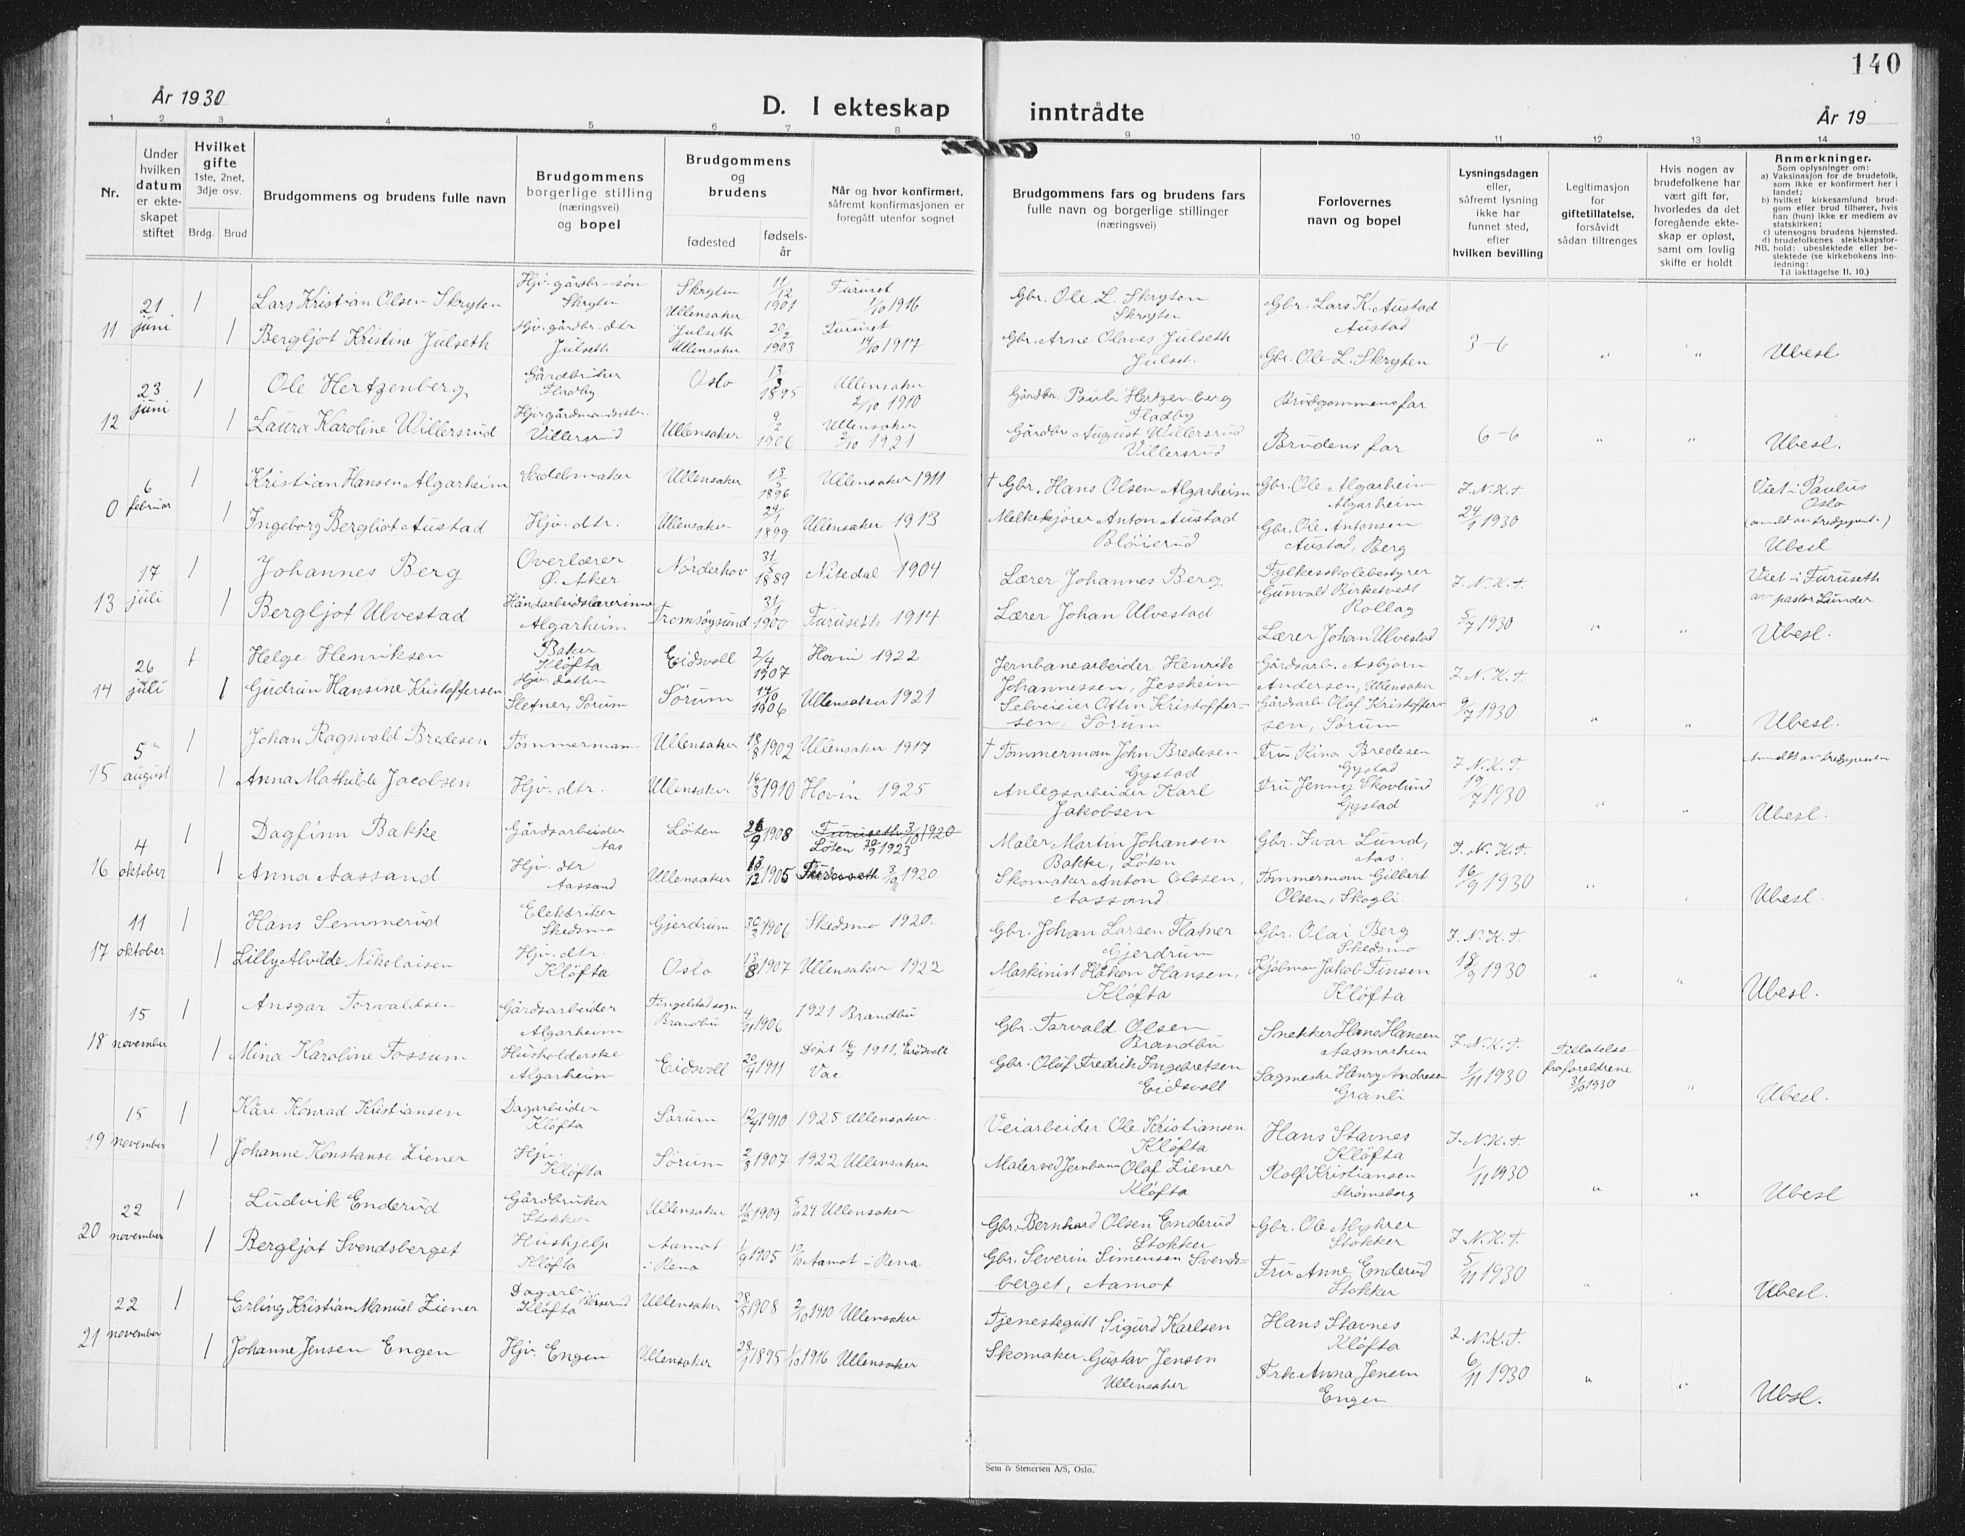 140
År 1930
D. I ekteskap inntrådte
År 19
1 2 3 4 5 6 7 8 9 10 11 12 13 14
Nr.
Under hvilken datum er ekteskapet stiftet
Hvilket gifte
1ste, 2net, 3dje osv.
Brdg. Brud
Brudgommens og brudens fulle navn
Brudgommens borgerlige stilling (næringsvei) og bopel
Brudgommens og brudens
fødested
fødselsår
Når og hvor konfirmert, såfremt konfirmasjonen er foregått utenfor sognet
Brudgommens fars og brudens fars fulle navn og borgerlige stillinger (næringsvei)
Forlovernes navn og bopel
Lysningsdagen eller, såfremt lysning ikke har funnet sted, efter hvilken bevilling
Legitimasjon for giftetillatelse, forsåvidt sådan tiltrenges
Hvis nogen av brudefolkene har vært gift før, hvorledes da det foregående ekteskap er opløst, samt om lovlig skifte er holdt
Anmerkninger.
Som oplysninger om:
a) Vaksinasjon for de brudefolk, som ikke er konfirmert her i landet;
b) hvilket kirkesamfund brudgom eller brud tilhører, hvis han (hun) ikke er medlem av statskirken;
c) utensogns brudens hjemsted.
d) brudefolkenes slektskapsforhold: ubeslektede eller beslektede (se kirkebokens innledning:
NB. Til iakttagelse II. 10.)
11 21 juni 1 Lars Kristian Olsen Skryten Hjv. gårdbr.-søn Skryten Skryten Ullensaker 11/12 1901 Furuset 1/10 1916 Gbr. Ole L. Skryten Skryten Gbr. Lars K. Austad Austad
1 Bergljot Kristine Julseth Hjv. gårdbr. dtr Julseth Julseth Ullensaker 20/2 1903 Furuset 14/10 1917 Gbr. Arne Olaves Julseth Julset. Gbr. Ole L. Skryten 3-6 " " Ubesl
12 23 juni 1 Ole Hertzenberg Gårdbruker Fladby Oslo 13/3 1895 Ullensaker 2/10 1910 Gårdbr. Paul Hertzenberg Fladby Brudgommens far
1 Laura Karoline Willersrud Villersrud Ullensaker 9/2 1906 Ullensaker 2/10 1921 Gårdbr August Willersrud Villersrud Brudens far 6-6 " " Ubesl.
0 6 februar 1 Kristian Hansen Algarheim Sadelmaker Ullensaker 13/5 1896 Ullensaker 1911 † Gbr. Hans Olsen Algarheim Gbr. Ole Algarheim Algarheim J.N.K.T. Viet i Paulus Oslo
1 Ingeborg Bergliot Austad Hjv. dtr. Ullensaker 24/1 1899 Ullensaker 1913 Melkekjører Anton Austad Bløierud Gbr. Ole Antonsen Austad, Berg 24/1 1930 Ubesl
13 17 juli 1 Johannes Berg Overlærer Ø. Aker Norderhov 31/5 1889 Nitedal 1904 Lærer Johannes Berg Fylkesskolebestyrer Gunvald Birketvedt Rollag J.N.K.T. Viet i Furuseth av pastor Lunder
1 Bergljot Ulvestad Håndarbeidslærerinne Algarheim Tromsøysund 31/1 1900 Furuseth 1914 Lærer Johan Ulvestad Lærer Johan Ulvestad 5/7 1930 " " Ubesl.
14 26 juli 1 Helge Henriksen Baker Kløfta Eidsvoll 2/4 1907 Hovin 1922 Jernbanearbeider Henrik Johannessen, Jessheim Gårdsarb. Asbjørn Andersen, Ullensaker J.N.K.T.
1 Gudrun Hansine Kristoffersen Hjv. datter Sletner, Sørum Sørum 14/10 1906 Ullensaker 1921 Selveieier Ottin Kristoffersen, Sørum Gårdsarb. Olaf Kristoffersen, Sørum 9/7 1930 " " Ubesl.
15 5 august 1 Johan Ragnvald Bredesen Tømmerman Ullensaker 18/8 1902 Ullensaker 1917 † Tømmerman John Bredesen Gystad Fru Rina Bredesen Gystad J.N.K.T.
1 Anna Mathilde Jacobsen Hjv. dtr. Ullensaker 16/3 1910 Hovin 1925 Anlegsarbeider Karl Jakobsen Fru Jenny Skovlund Gystad 19/7 1930 " Ubesl.
16 4 oktober Dagfinn Bakke Gårdsarbeider Aas Løten 26/9 1908 Furuseth 3/10 1920 Løten 30/9 1923 Maler Martin Johansen Bakke, Løten Gbr. Ivar Lund, Aas. J.N.K.T.
1 Anna Aassand Hjv. dtr Aassand Ullensaker 13/12 1905 Furuseth 3/10 1920 Skomaker Anton Olssen, Aassand Tømmerman Gilbert Olsen, Skogli 16/9 1930 " Ubesl.
17 11 oktober 1 Hans Semmerud Elektriker Skedsmo Gjerdrum 30/3 1906 Skedsmo 1920. Gbr. Johan Larsen Flatner Gjerdrum Gbr. Olai Berg Skedsmo J.N.K.T.
1 Lilly Alvilde Nikolaisen Hjv. dtr. Kløfta Oslo 13/8 1907 Ullensaker 1922 Maskinist Håkon Hansen, Kløfta Kjøbman Jakob Finsen Kløfta 18/9 1930 " " Ubesl.
18 15 november 1 Ansgar Torvaldsen Gårdsarbeider Algarheim Tingelstad sogn Brandbu 4/11 1906 1921 Brandbu Gbr. Torvald Olsen Brandbu Snekker Hans Hansen Aasmarken J.N.K.T. Tillatelse fra foreldrene 31/10 1930
1 Mina Karoline Fossum Husholderske Algarheim Eidsvoll 20/4 1911 Døpt 16/7 1911, Eidsvoll Vac Gbr. Oluf Fredrik Ingebretsen Eidsvoll Sagmester Henry Andresen Granli 1/11 1930 " Ubesl.
19 15 november 1 Kåre Konrad Kristiansen Dagarbeider Kløfta Sørum 12/4 1910 1925 Ullensaker Veiarbeider Ole Kristiansen Kløfta Hans Stavnes Kløfta J.N.K.T.
1 Johanne Konstanse Ziener Hjv. Kløfta Sørum 2/8 1907 1922 Ullensaker Maler ved Jernbanen Olaf Ziener Kløfta Rolf Kristiansen Strømsborg 1/11 1930 " " Ubesl
20 22 november 1 Ludvik Enderud Gårdbruker Stokker Ullensaker 1909 24 Ullensaker Gbr. Bernhard Olsen Enderud Stokker Gbr. Ole Myhrer Stokker J.N.K.T.
1 Bergljot Svendsberget Hushjelp Kløfta Aamot i Rena 1/9 1905 Aamot i Rena Gbr. Severin Simensen Svendsberget, Aamot Fru Anne Enderud Stokker 5/11 1930 " Ubesl.
21 22 november 1 Erling Kristian Manuel Ziener Dagarb. Kløfta Ullensaker 28/5 1908 2/10 1910 Ullensaker Tjenestegutt Sigurd Karlsen Hans Stavnes Kløfta J.N.K.T.
1 Johanne Jensen Engen Hjv. Engen Ullensaker 29/1 1895 1/10 1916 Ullensaker Skomaker Gustav Jensen Ullensaker Frk Anna Jensen Engen 6/11 1930 " " Ubsl.
Sem & Stenersen A/S, Oslo.